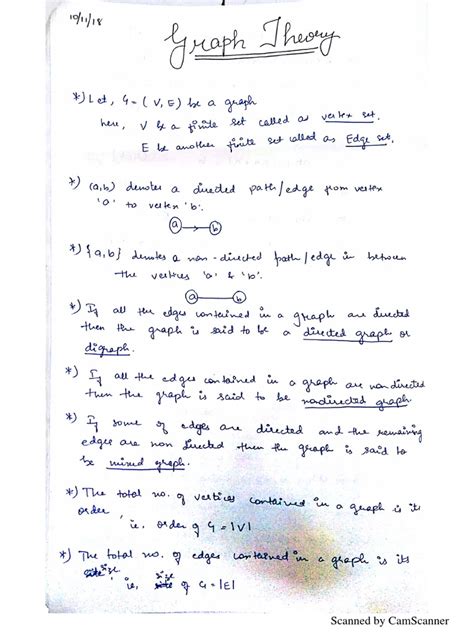 10/11/18
Graph Theory
*) Let, G = (V, E) be a graph
here, V be a finite set called as vertex set.
E be another finite set called as Edge set.
*) (a,b) denotes a directed path/edge from vertex
'a' to vertex 'b'.
a b
*) {a,b} denotes a non-directed path/edge in between
the vertices 'a' & 'b'.
a b
*) If all the edges contained in a graph are directed
then the graph is said to be a directed graph or
digraph.
*) If all the edges contained in a graph are nondirected
then the graph is said to be nondirected graph.
*) If some of edges are directed and the remaining
edges are non directed then the graph is said to
be mixed graph.
*) The total no. of vertices contained in a graph is it
order
ie. order of G = |V|
*) The total no. of edges contained in a graph is its
size
ie, size of G = |E|
Scanned by CamScanner